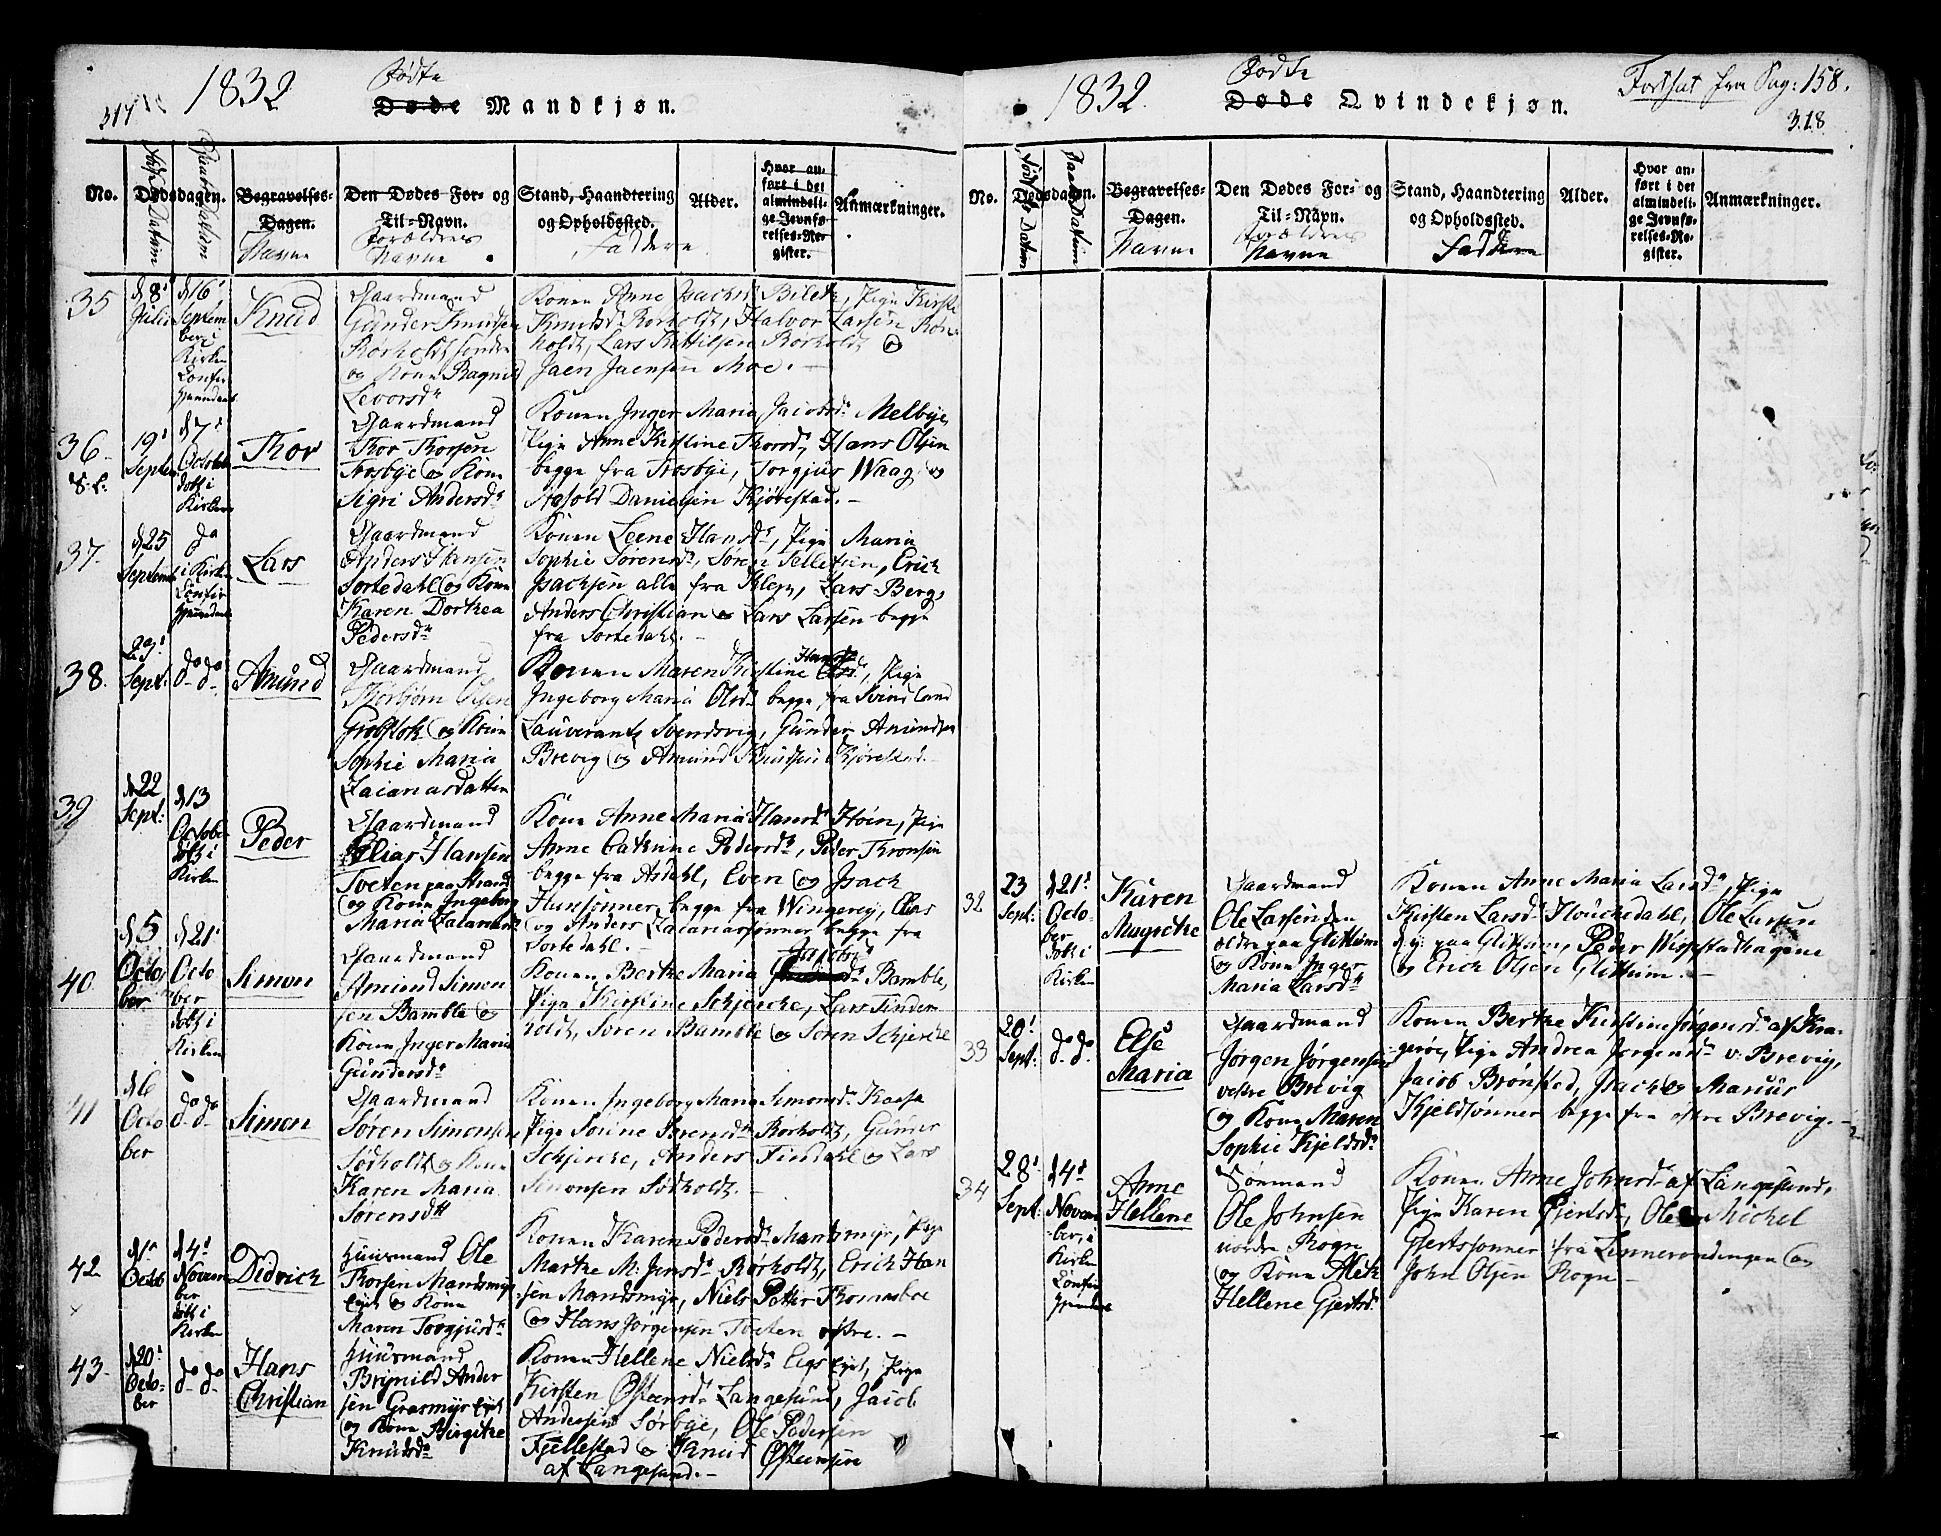 317
1832
Fødte
Døde Mandkjøn.
No.
Dødsdagen.
Fødsels Datum
Daabs Datum
Begravelses-
Dagen.
Navne
Den Dødes For- og
Til-Navn.
Forældrenes
Navne
Stand, Haandtering
og Opholdssted.
Faddere
Alder.
Hvor an-
ført i det
almindeli-
ge Jevnfø-
relses-Re-
gister.
Anmærkninger.
35
d 8de
Julii
d 16de
Septem
ber i
Kirken
Knud
Gaardmand
Gunder Knudsen
Rørholdt søndre
og Kone Ragnild
Levorsdr
Konen Anne Isachsdr Bilet, Pige Kirsti
Knudsdr Rørholdt, Halvor Larsen Røn-
holdt, Lars Kittilsen Rørholdt og
Jaen Jaensen Moe.
36
19de
Septem
d 7de
October
døbt i
Kirken
Thor
Gaardmand
Thor Thorsen
Trosbye og Kone
Sigri Andersdr
Konen Inger Maria Jacobsdr Melbye,
Pige Anne Kirstine Thorsdr, Hans Olsen
begge fra Trosbye, Torgjus Waag og
Aasold Danielsen Kjørestad.
37
d 25
Septem
do
i Kirken
Lars
Gaardmand
Anders Hansen
Sortedahl og Kone
Karen Dorthea
Pedersdr
Konen Leene Hansdr, Pige Maria
Sophie Sørensdr, Søren Tellefsen, Erich
Isachsen alle fra Klep, Lars Berg,
Anders Christian og Lars Larsen begge
fra Sortedahl.
38.
29de
Sept:
do do
Amund
Gaardmand
Thorbjørn Olsen
Grobstok og Kone
Sophie Maria
Zaiariasdatter
Konen Maren Kirstine Hansdr, Pige
Ingeborg Maria Olsdr begge fra Svinelland
Lauverants Svendsvig, Gunder Amundsen
Brevig og Amund Knudsen Kjørestad.
39
d 22
Sept:
d 13
October
døbt i
Kirken
Peder
Gaardmand
Elias Hansen
Tveten paa Strand
og Kone Ingeborg
Maria Zaiariasdr
Kone Anne Maria Hansdr Høin, Pige
Anne Cathrine Pedersdr, Peder Thronsen
begge fra Asdahl, Even og Isach
Hanssønner begge fra Wingereig, Elias
og Anders Zaiariassønner begge fra
Sortedahl.
40
d 5
Octo
ber
d 21de
Octo
ber
døbt i
Kirken
Simon
Gaardmand
Amund Simon
sen Bamble og
Kone Inger Maria
Gundersdr
Konen Berthe Maria Jacobsdr Bamble,
Pige Kirstine Schjerche, Lars Findem
holdt, Søren Bamble og Søren Schjerche
41
d 6
Octo
ber
do do
Simon
Gaardmand
Søren Simonsen
Sødholdt og Kone
Karen Maria
Sørensdtr
Konen Ingeborg Maria Simonsdr Kassa
Pige Sørine Brensdr Rørholdt, Gunner
Schjerche, Anders Findahl og Lars
Simonsen Sødholdt.
42
d 1de
Octo
d 4de
Novem
ber
døbt i
Kirken
Didrich
Huusmand Ole
Thorsen Mandsmyr
eiet og Kone
Maren Torgjusdr
Konen Karen Pedersdr Mandsmyr, Pige
Marthe M: Jensdr Rørholdt, Erich Han
sen Mandsmyr, Niels Petter Thomasboe
og Hans Jørgensen Tveten østre.
43
d 20de
Octo-
ber
do do
Hans
Christian
Huusmand
Brynild Ander
sen Grasmyr eiet
og Kone Birgithe
Knudsdr
Konen Hellene Nielsdr Eegs eiet, Pige
Kirsten Østensdr Langesund, Jacob
Andersen Sørbye, Ole Pedersen
Fjellestad og Knud Østensen
af Langesund.
1832.
Fødte
Døde Qvindekjøn.
Fortsat fra Pag: 158.
318
No.
Dødsdagen.
Fødsels Datum
Daabs Datum
Begravelses-
Dagen.
Navne
Den Dødes For- og
Til-Navn.
Forældrenes
Navne
Stand, Haandtering
og Opholdssted.
Faddere
Alder.
Hvor an-
ført i det
almindeli-
ge Jevnfø-
relses-Re-
gister.
Anmærkninger.
32
23
Sept:
d 21de
Octo-
ber
døbt i
Kirken
Karen
Magrethe
Gaardmand
Ole Larsen den
ældre paa Glittum
og Kone Inger
Maria Larsdr
Konen Anne Maria Larsdr, Pige
Kirsten Larsdr Houchedahl, Ole Larsen
d. y: paa Glittum, Peder Wissestadhagene
og Erich Olsen Glittum.
33
20de
Sept:
do do
Else
Maria
Gaardmand
Jørgen Jørgensen
vestre Brevig
og Kone Maren
Sophie Kjeldsdr
Konen Berthe Kirstine Jørgensdr af Kra
gerøe, Pige Andrea Jørgensdr v: Brevig,
Jacob Brønsted, Isach og Marius
Kjeldsønner begge fra østre Brevig.
34
28de
Sept:
d 4de
Novem
ber, i
Kirken
Anne
Hellene
Sønmand
Ole Johnsen
nordre Rogn
og Kone Aleth
Hellene Gjertsdr
Konen Anne Johnsdr af Langesund,
Pige Karen Gjertsdr, Ole og Michel
Gjertssønner fra Linnerondingen og
John Olsen Rogn